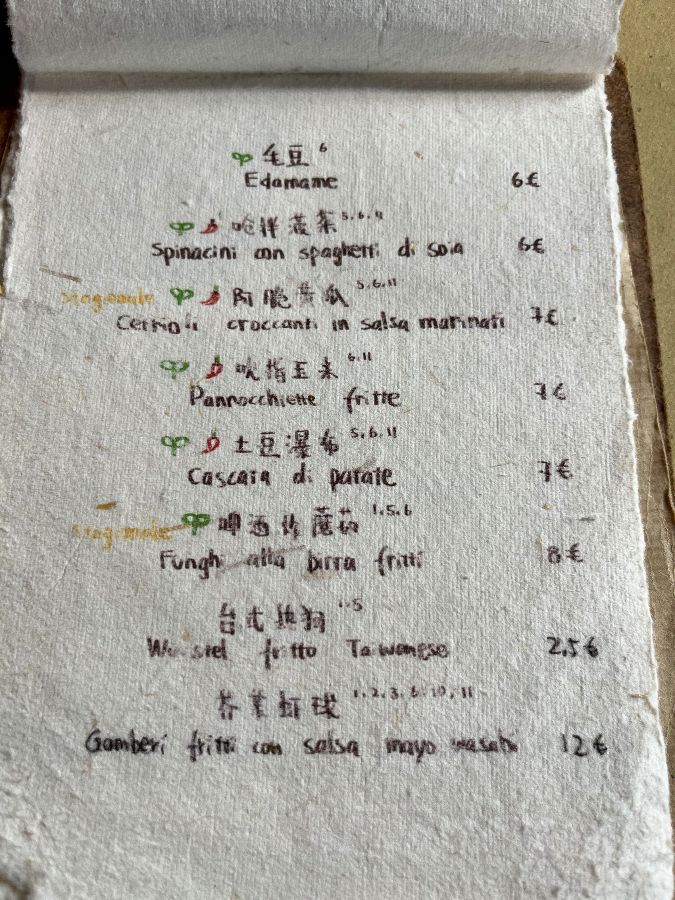 毛豆 6
Edamame 6€
呛拌菠菜 5.6.11
Spinacini con spaghetti di soia 6€
Stagionale 阿脆黄瓜 5.6.11
Cetrioli croccanti in salsa marinati 7€
吮指玉米 6.11
Pannocchiette fritte 7€
土豆瀑布 5.6.11
Cascata di patate 7€
Stagionale 啤酒炸蘑菇 1.5.6
Funghi alla birra fritti 8€
台式热狗 1.5
Wurstel fritto Taiwanese 2.5€
芥末虾球 1.2.3.6.10.11
Gamberi fritti con salsa mayo wasabi 12€